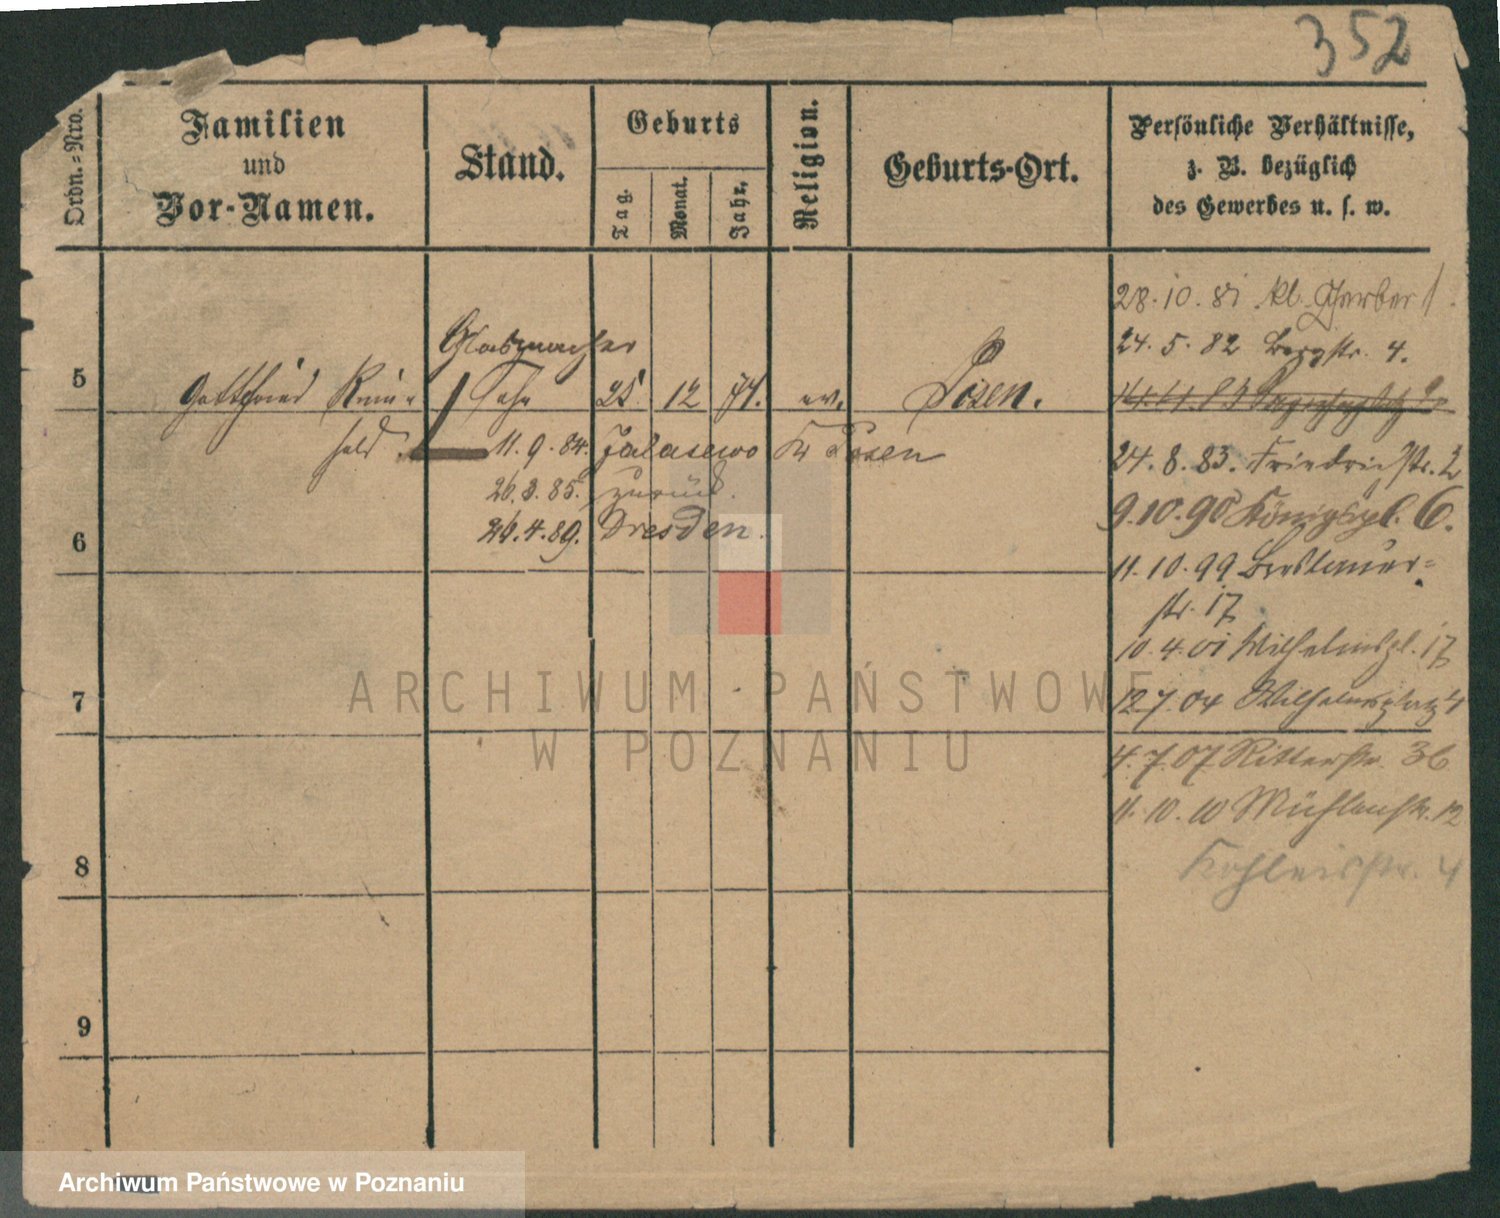 352
Ordn.-Nro.
Familien
und
Vor-Namen.
Stand.
Geburts
Tag.
Monat.
Jahr.
Religion.
Geburts-Ort.
Persönliche Verhältnisse,
z. B. bezüglich
des Gewerbes u. s. w.
28.10.81 kl. Gerber
24.5.82 Bergstr. 4.
5
Gottfried Rein-
hold
Sohn
25 12 74. ev. Posen.
11.9.84. Jalasewo Kr Posen
26.3.85. zurück.
24.8.83. Friedrichstr. 2
9.10.90 Königspl. 6.
6
24.4.89. Dresden.
11.10.99 Breslauer-
str. 17
10.4.01 Wilhelmspl. 17
7
12.7.04 Wilhelmsplatz 4
4.7.07 Ritterstr. 36
11.10.10 Mühlenstr. 12
8
9
ARCHIWUM PAŃSTWOWE
W POZNANIU
Archiwum Państwowe w Poznaniu